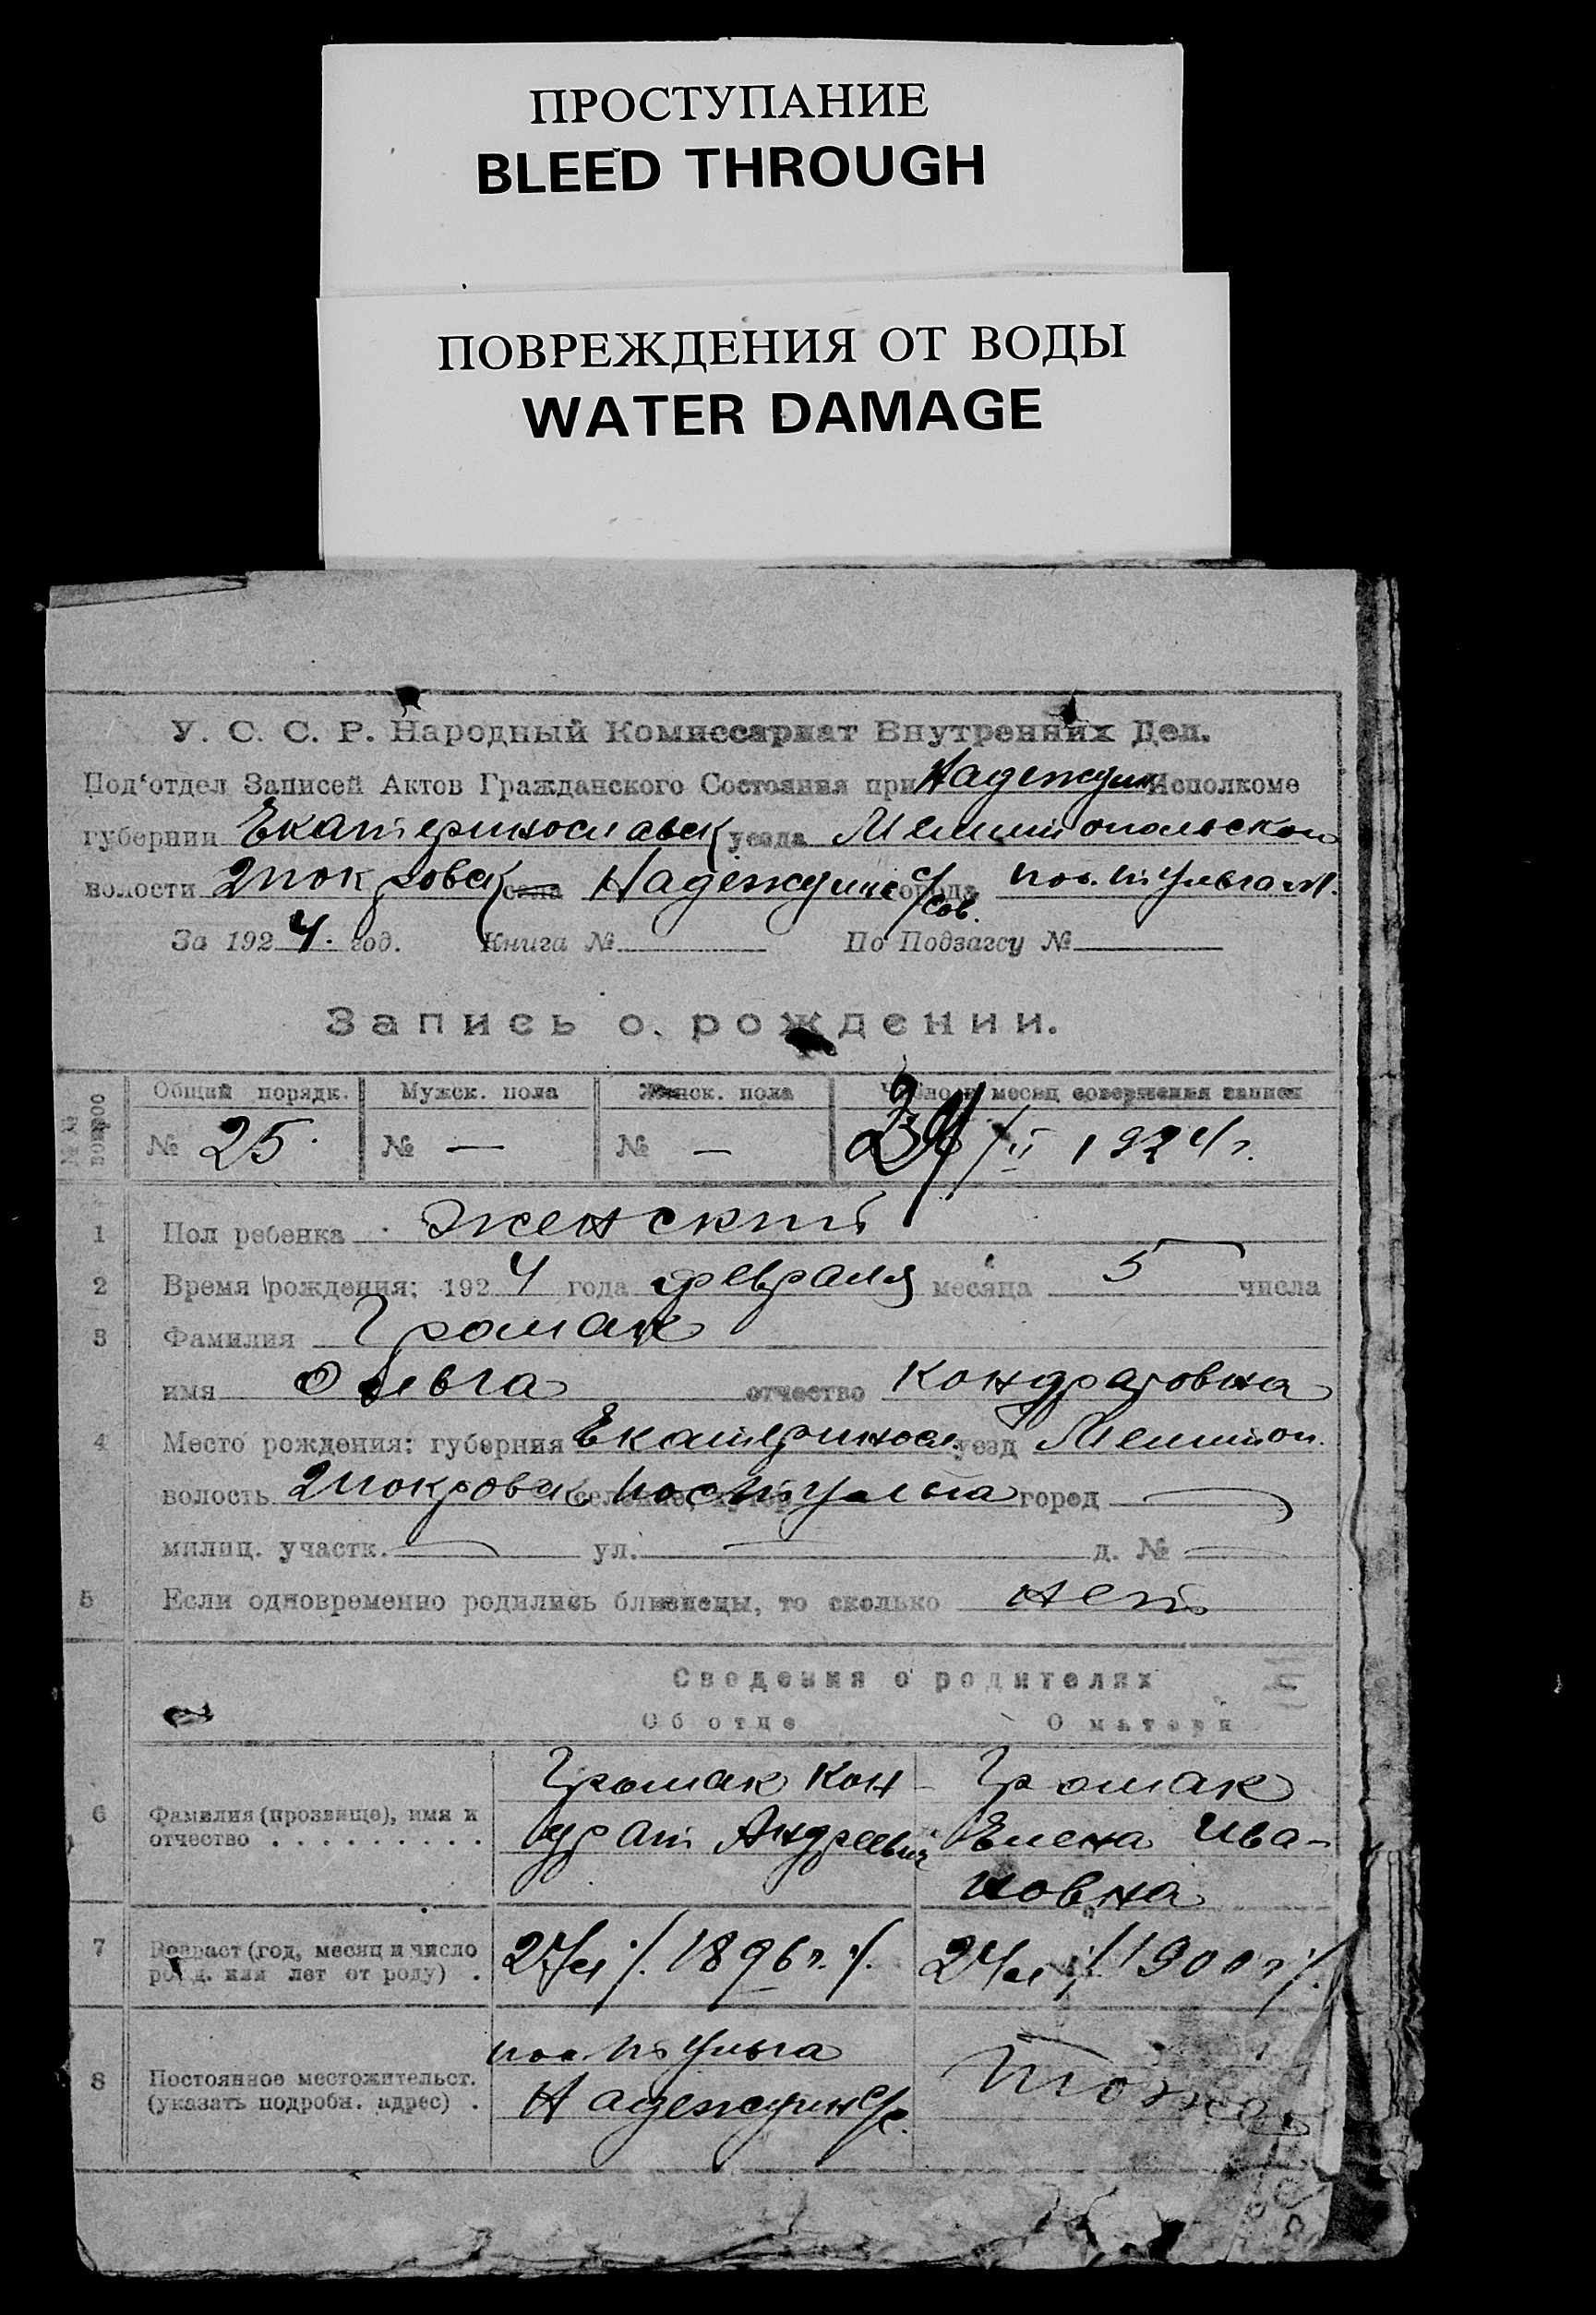 ПРОСТУПАНИЕ
BLEED THROUGH
ПОВРЕЖДЕНИЯ ОТ ВОДЫ
WATER DAMAGE
У. С. С. Р. Народный Комиссариат Внутренних Дел.
Под'отдел Записей Актов Гражданского Состояния при Надеждин Исполкоме
губернии Екатеринославск уезда Мелитопольском
волости Покровск села Надеждинс с/сов. города
За 1924. год. Книга № По Подзагсу №
Запись о рождении.
№№ вопрос
Общий порядк. Мужск. пола Женск. пола Число и месяц совершения записи
№ 25. № — № — /II 1924 г.
1 Пол ребенка женский
2 Время рождения: 1924 года февраля месяца 5 числа
3 Фамилия Громак
имя Ольга отчество Кондратовна
4 Место рождения: губерния Екатериносл. уезд Мелитоп.
волость Покровск город —
милиц. участк. — ул. — д. № —
5 Если одновременно родились близнецы, то сколько нет
Сведения о родителях
Об отце О матери
6 Фамилия (прозвище), имя и отчество . . . . . . . . .
Громак Кон-
драт Андреевич
Громак
Елена Ива-
новна
7 Возраст (год, месяц и число рожд. или лет от роду) .
1896 г. 1900 г.
8 Постоянное местожительст. (указать подробн. адрес) .
Надеждин с/с.
тоже